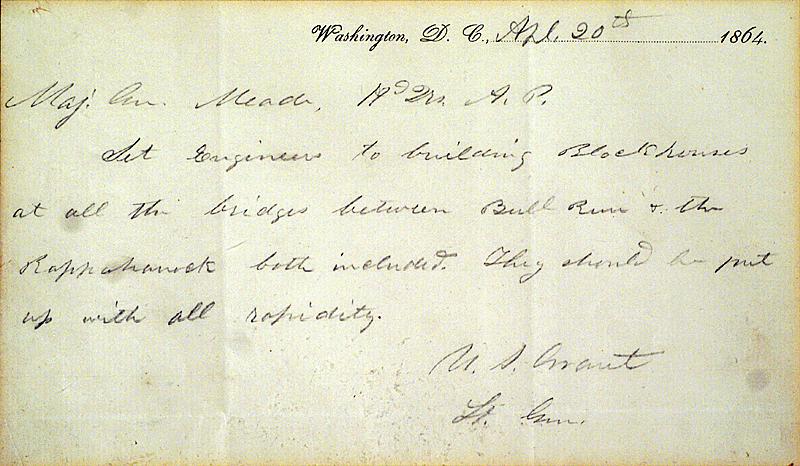 Washington, D. C., Apl. 20th 1864.
Maj. Gen. Meade, Hd Qrs. A. P.
Set Engineers to building Blockhouses
at all the bridges between Bull Run & the
Rappahanock both included. They should be put
up with all rapidity.
U. S. Grant
Lt. Gen.